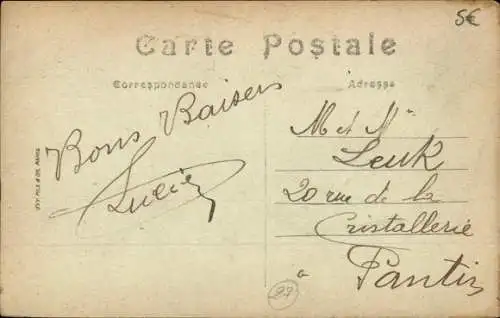 5€
Carte Postale
Correspondance
Adresse
Bons Baisers
Lucie
M et Mme
Leuk
20 rue de la
Cristallerie
à
Pantin